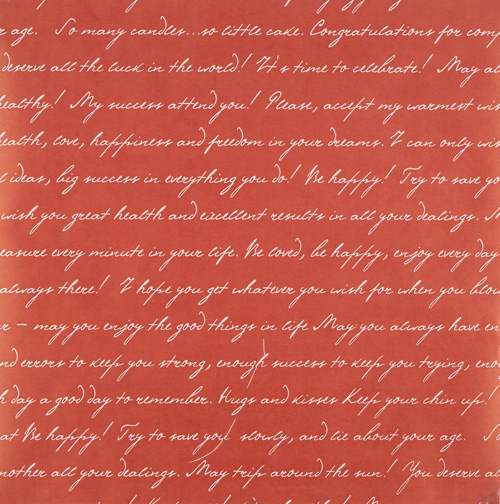 r age. So many candles...so little cake. Congratulations for comp
deserve all the luck in the world! It's time to celebrate! May al
healthy! My success attend you! Please, accept my warmest wis
health, love, happiness and freedom in your dreams. I can only wis
l ideas, big success in everything you do! Be happy! Try to save yo
wish you great health and excellent results in all your dealings.
easure every minute in your life. Be loved, be happy, enjoy every day
always there! I hope you get whatever you wish for when you blow
r – may you enjoy the good things in life May you always have en
nd errors to keep you strong, enough success to keep you trying, eno
h day a good day to remember. Hugs and kisses Keep your chin up!
at Be happy! Try to save you slowly, and lie about your age. S
nother all your dealings. May trip around the sun! You deserve al